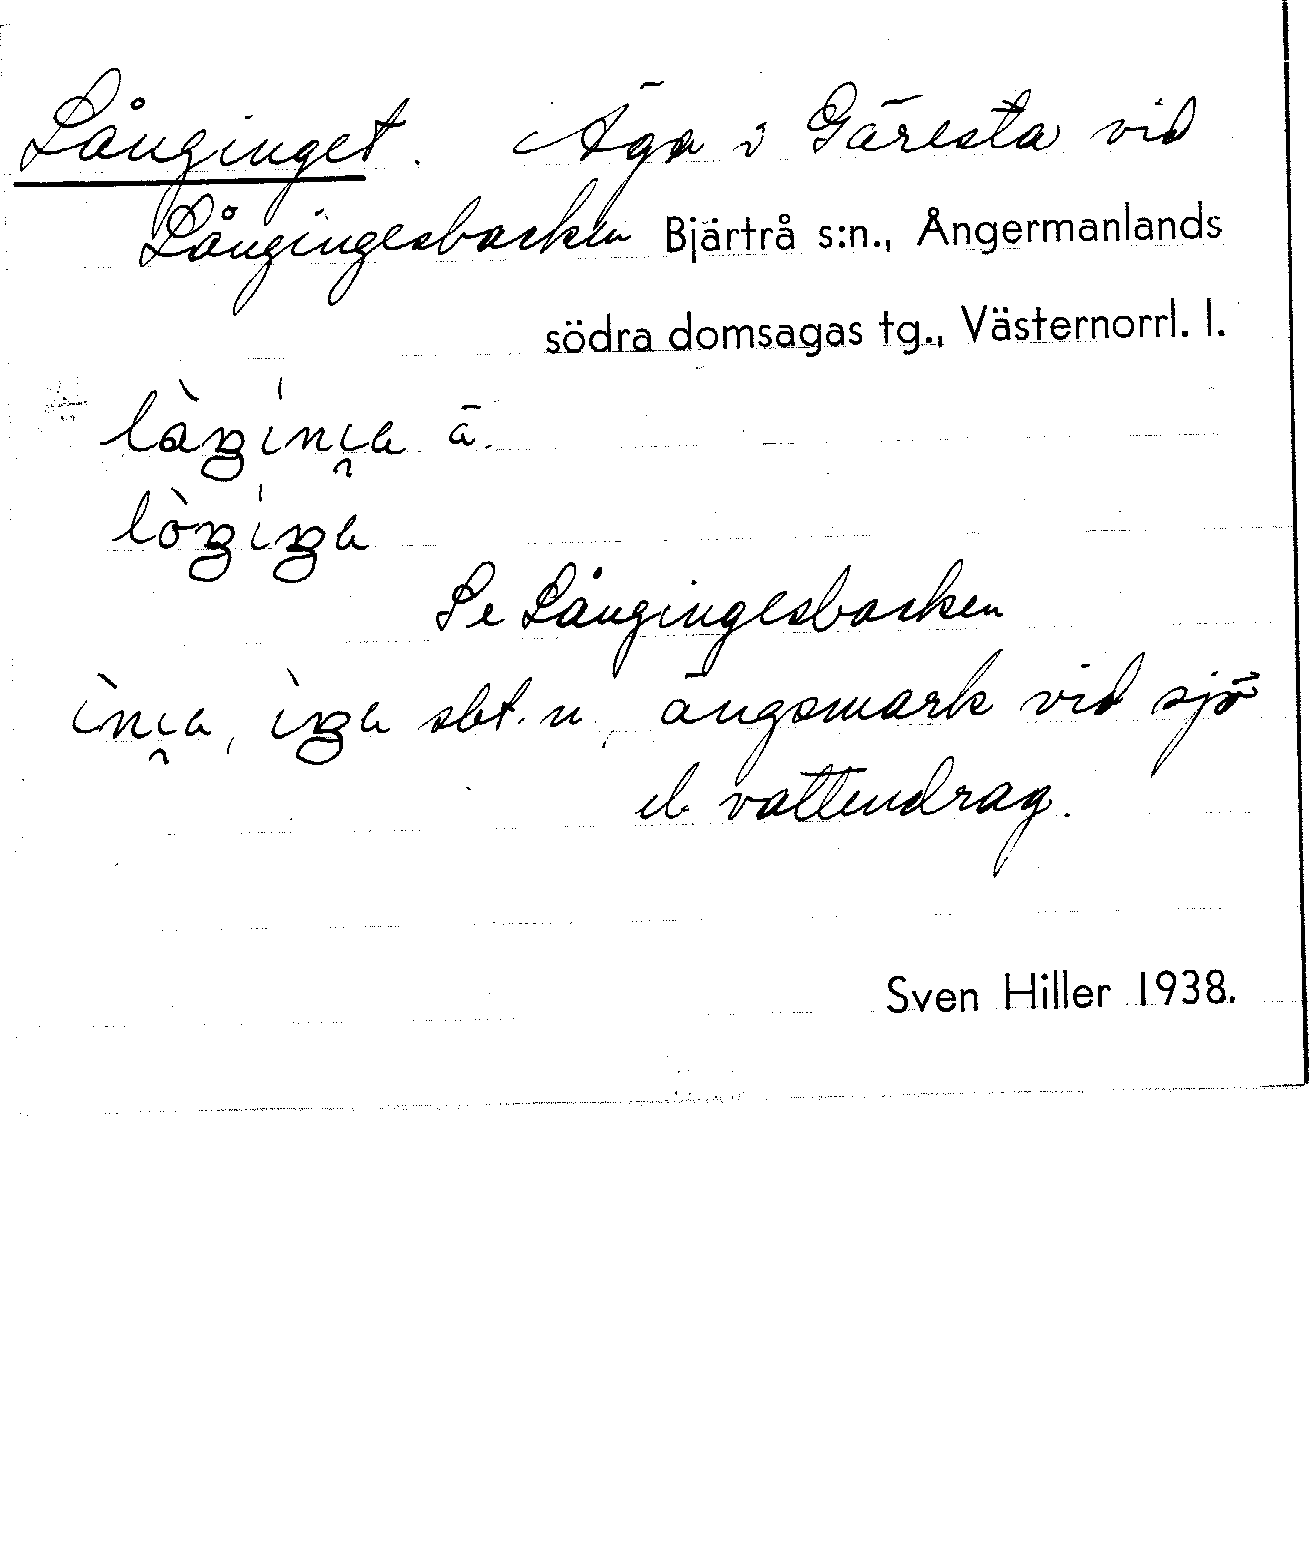 Långinget. Äga i Gäresta vid
Långingesbacken Bjärtrå s:n., Ångermanlands
södra domsagas tg., Västernorrl. l.
ä.
Se Långingesbacken
sbt. n, ängsmark vid sjö
el. vattendrag.
Sven Hiller 1938.